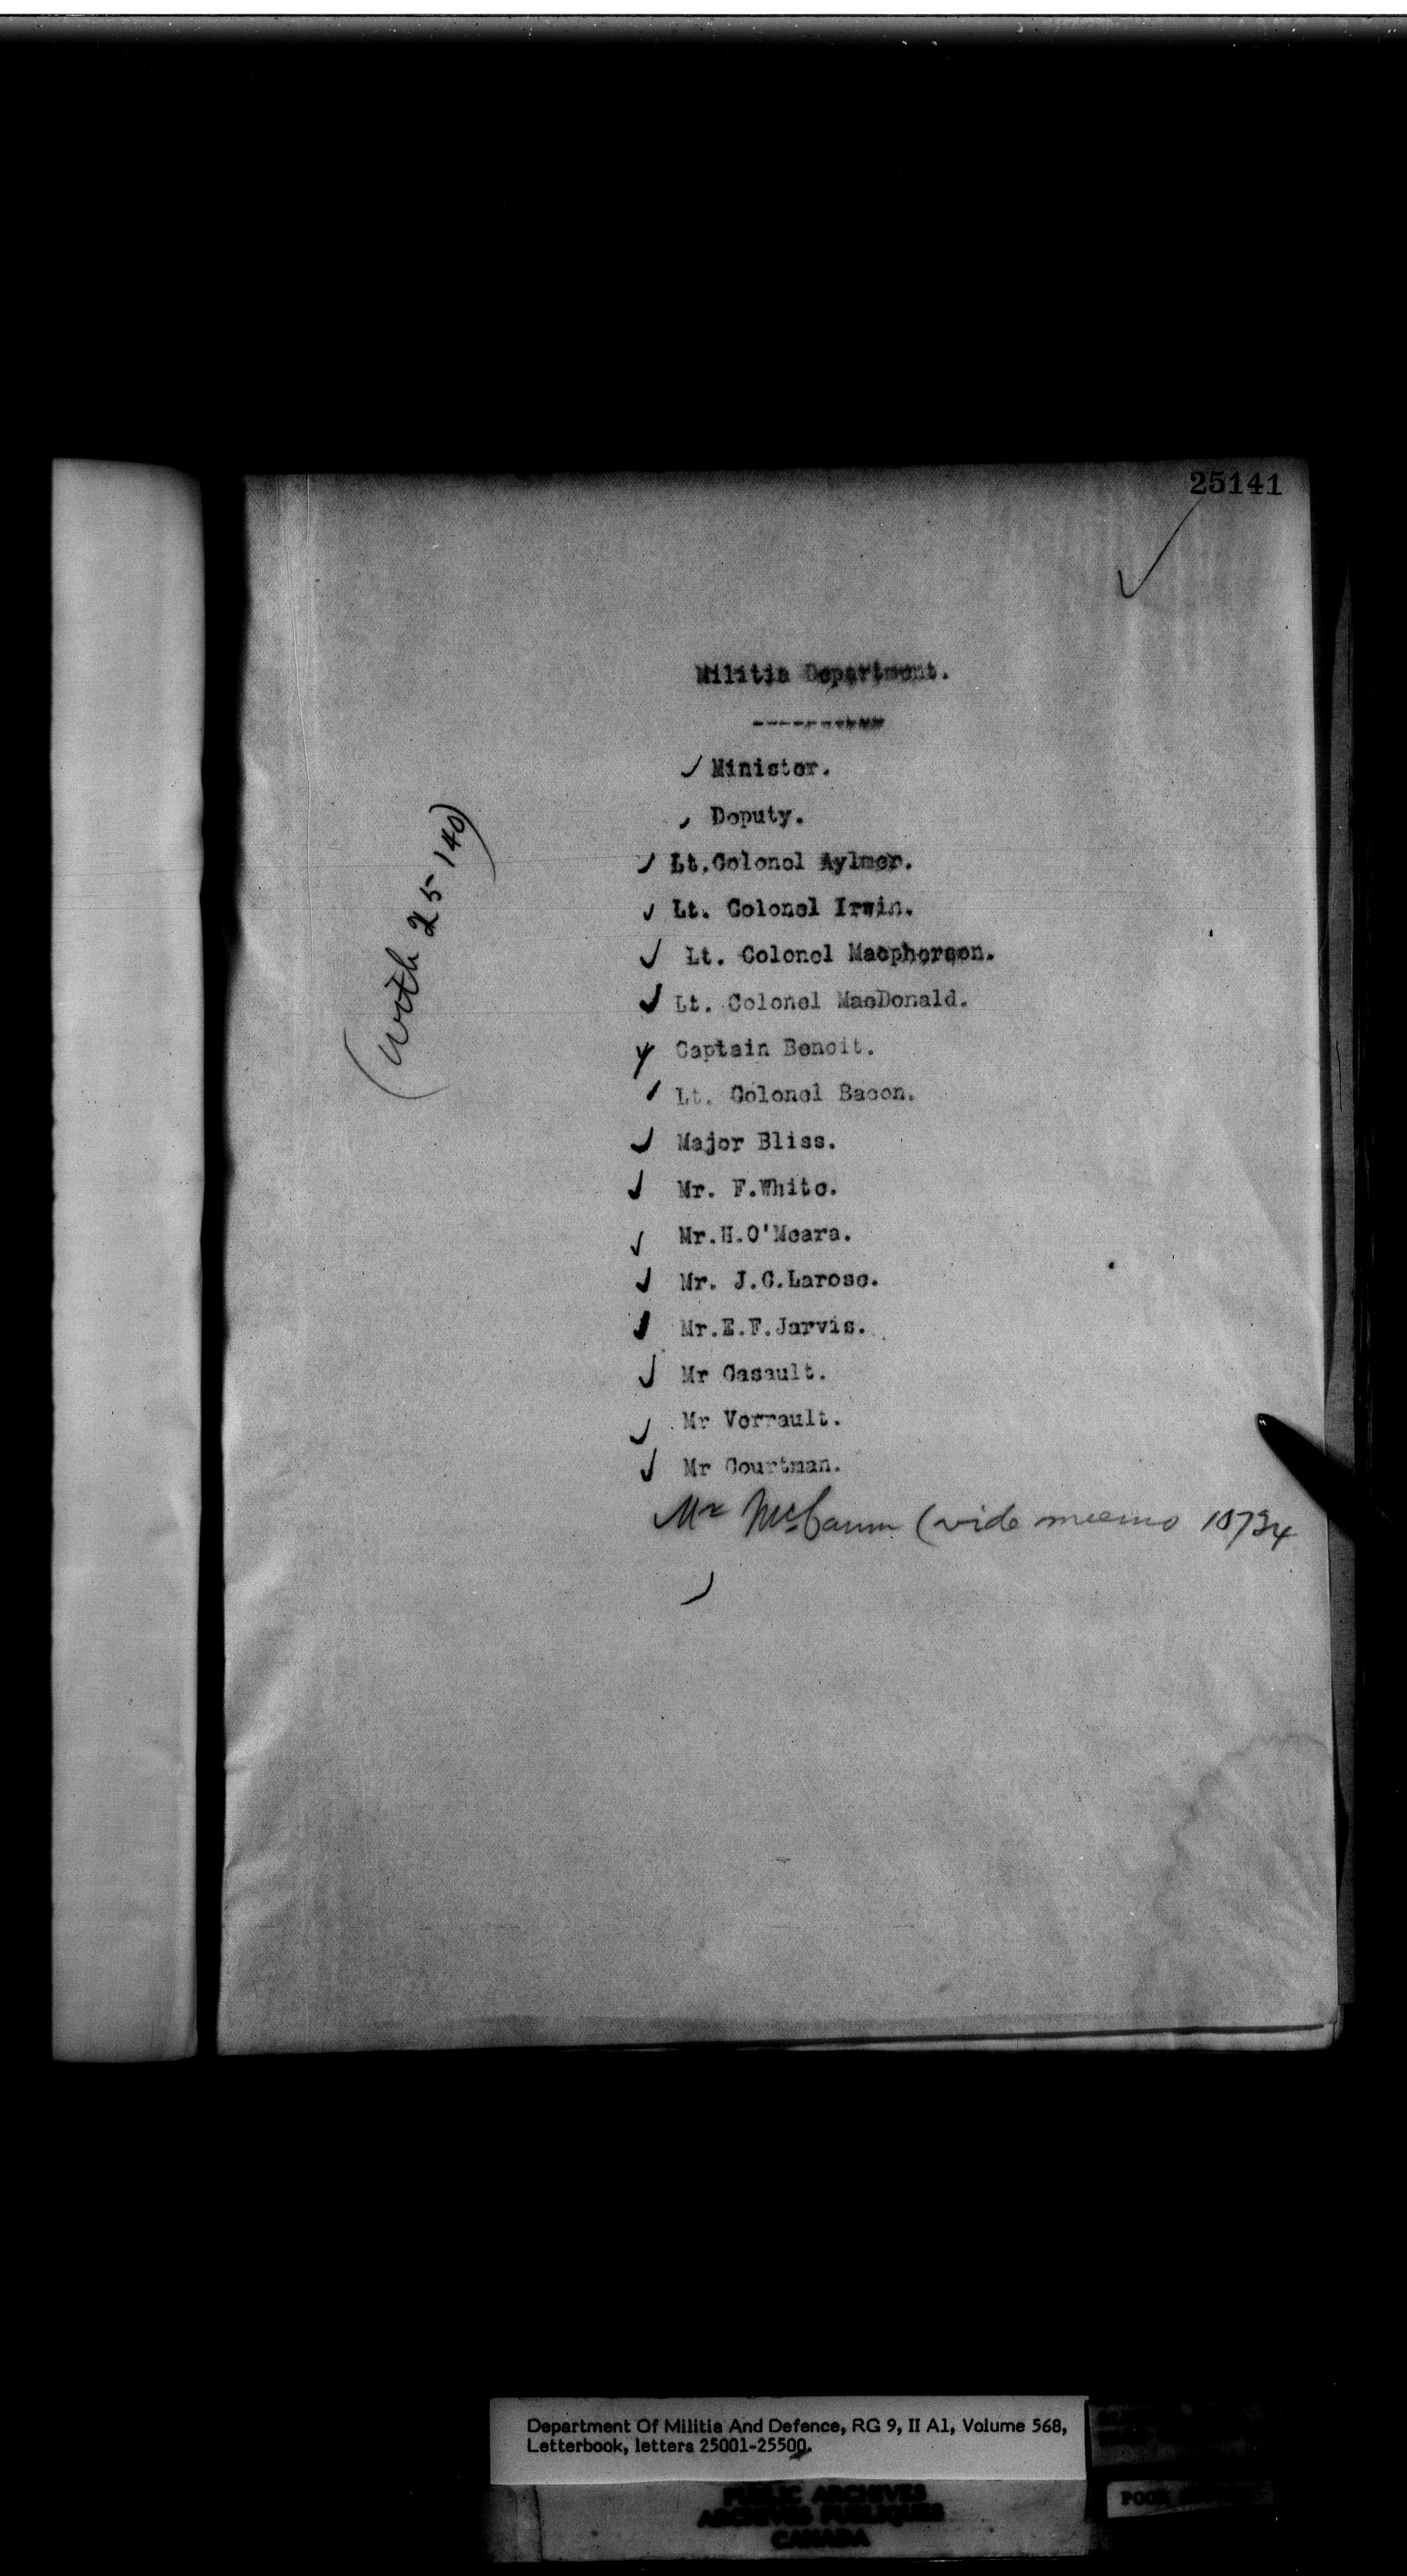 25141
Militia Department.
----------
✓ Minister.
✓ Deputy.
✓ Lt.Colonel Aylmer.
✓ Lt. Colonel Irwin.
✓ Lt. Colonel Macpherson.
✓ Lt. Colonel MacDonald.
✓ Captain Benoit.
✓ Lt. Colonel Bacon.
✓ Major Bliss.
✓ Mr. F.White.
✓ Mr.H.O'Meara.
✓ Mr. J.C.Larose.
✓ Mr.E.F.Jarvis.
✓ Mr Casault.
✓ Mr Verrault.
✓ Mr Courtman.
Mr McCann (vide memo 18734
(with 25140)
Department Of Militia And Defence, RG 9, II A1, Volume 568,
Letterbook, letters 25001-25500.
PUBLIC ARCHIVES
ARCHIVES PUBLIQUES
CANADA